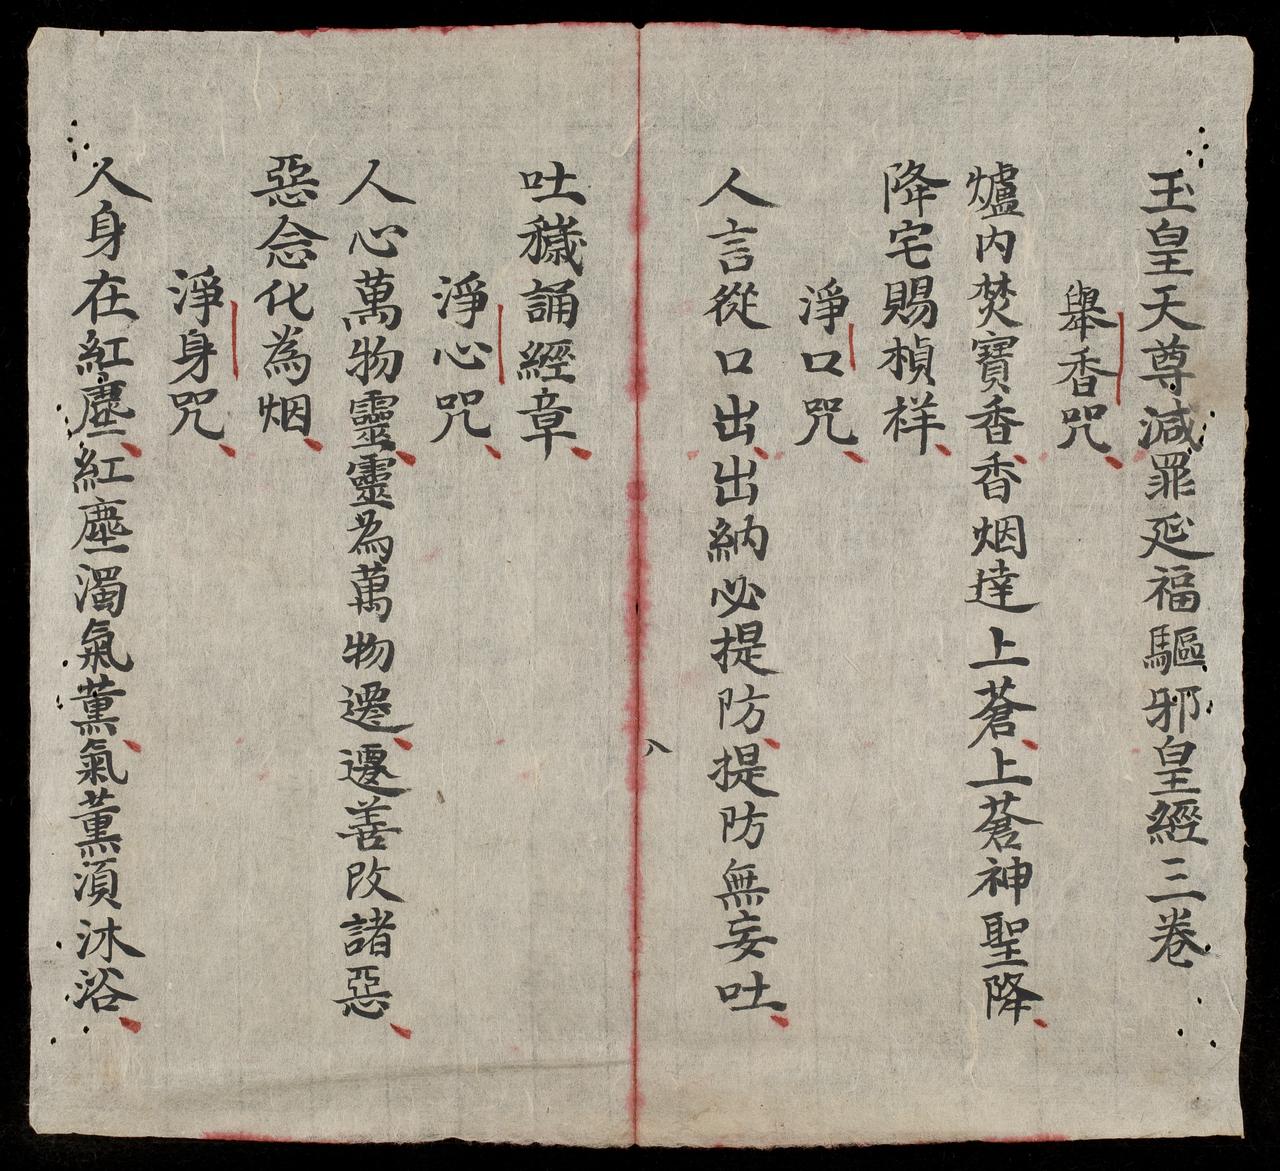 玉皇天尊減罪延福驅邪皇經三卷
舉香咒
爐内焚寶香香烟達上蒼上蒼神聖降
降宅賜楨祥
淨口咒
人言從口出出納必提防提防無妄吐
八
吐穢誦經章
淨心咒
人心萬物靈靈為萬物遷遷善改諸惡
惡念化為烟
淨身咒
人身在紅塵紅塵濁氣薰氣薰湏沐浴